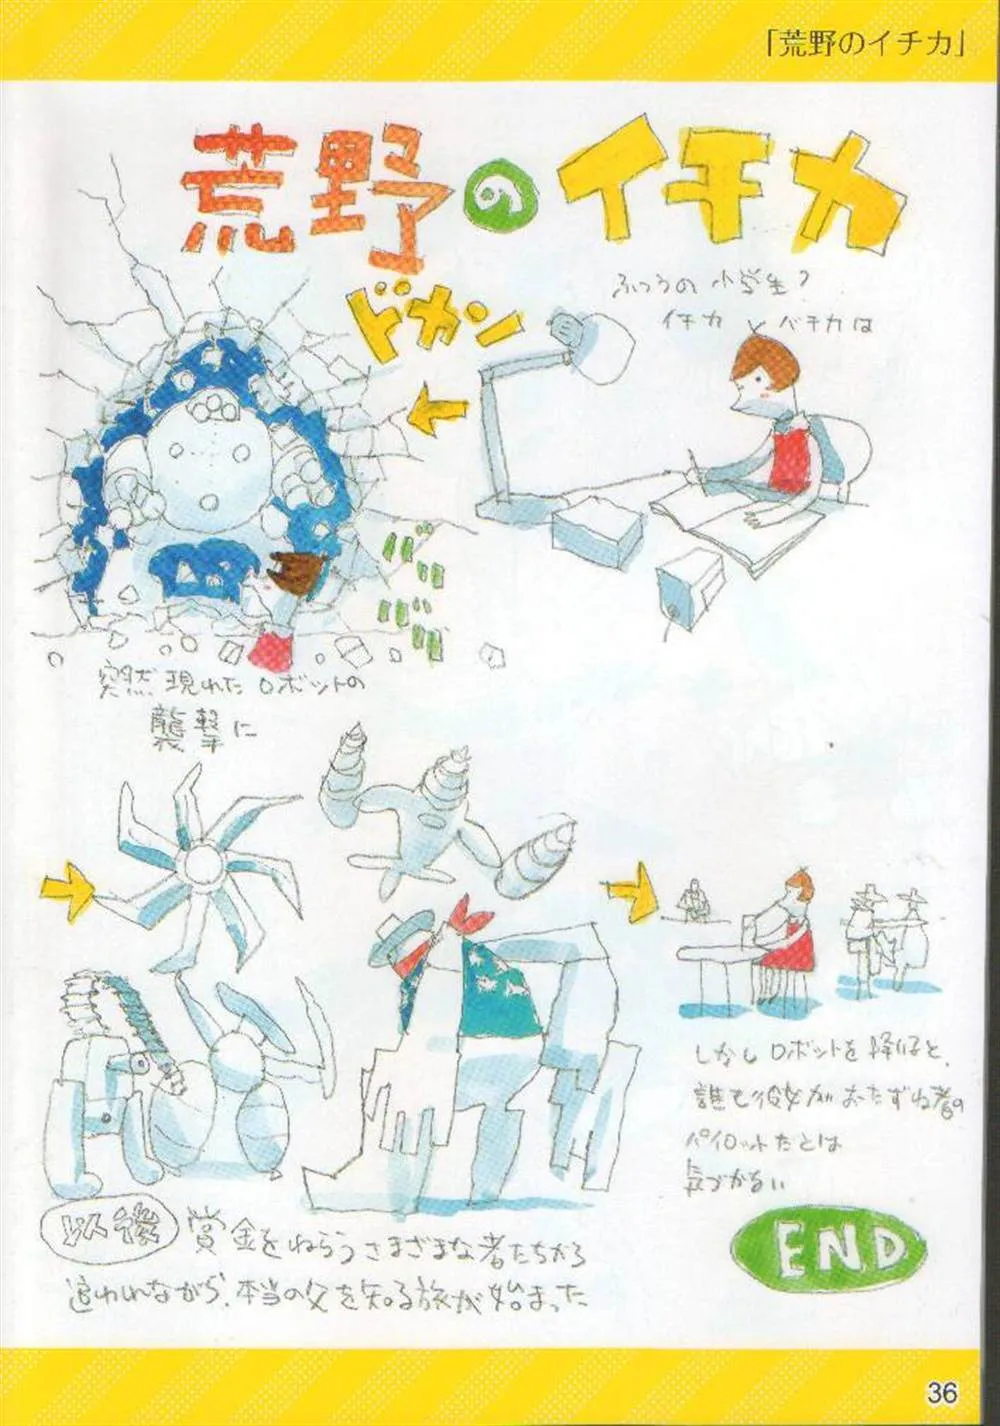 「荒野のイチカ」
荒野のイチカ
ふつうの小学生?
イチカ バチカは
ドカン
ババババ
突然現れたロボットの
襲撃に
以後 賞金をねらうさまざまな者たちから
追われながら、本当の父を知る旅が始まった
しかしロボットを降りると、
誰も彼女がおたずね者の
パイロットだとは
気づかない
END
36